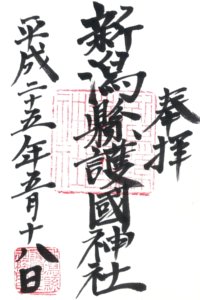 奉拝
新潟縣護國神社
平成二十五年五月十八日